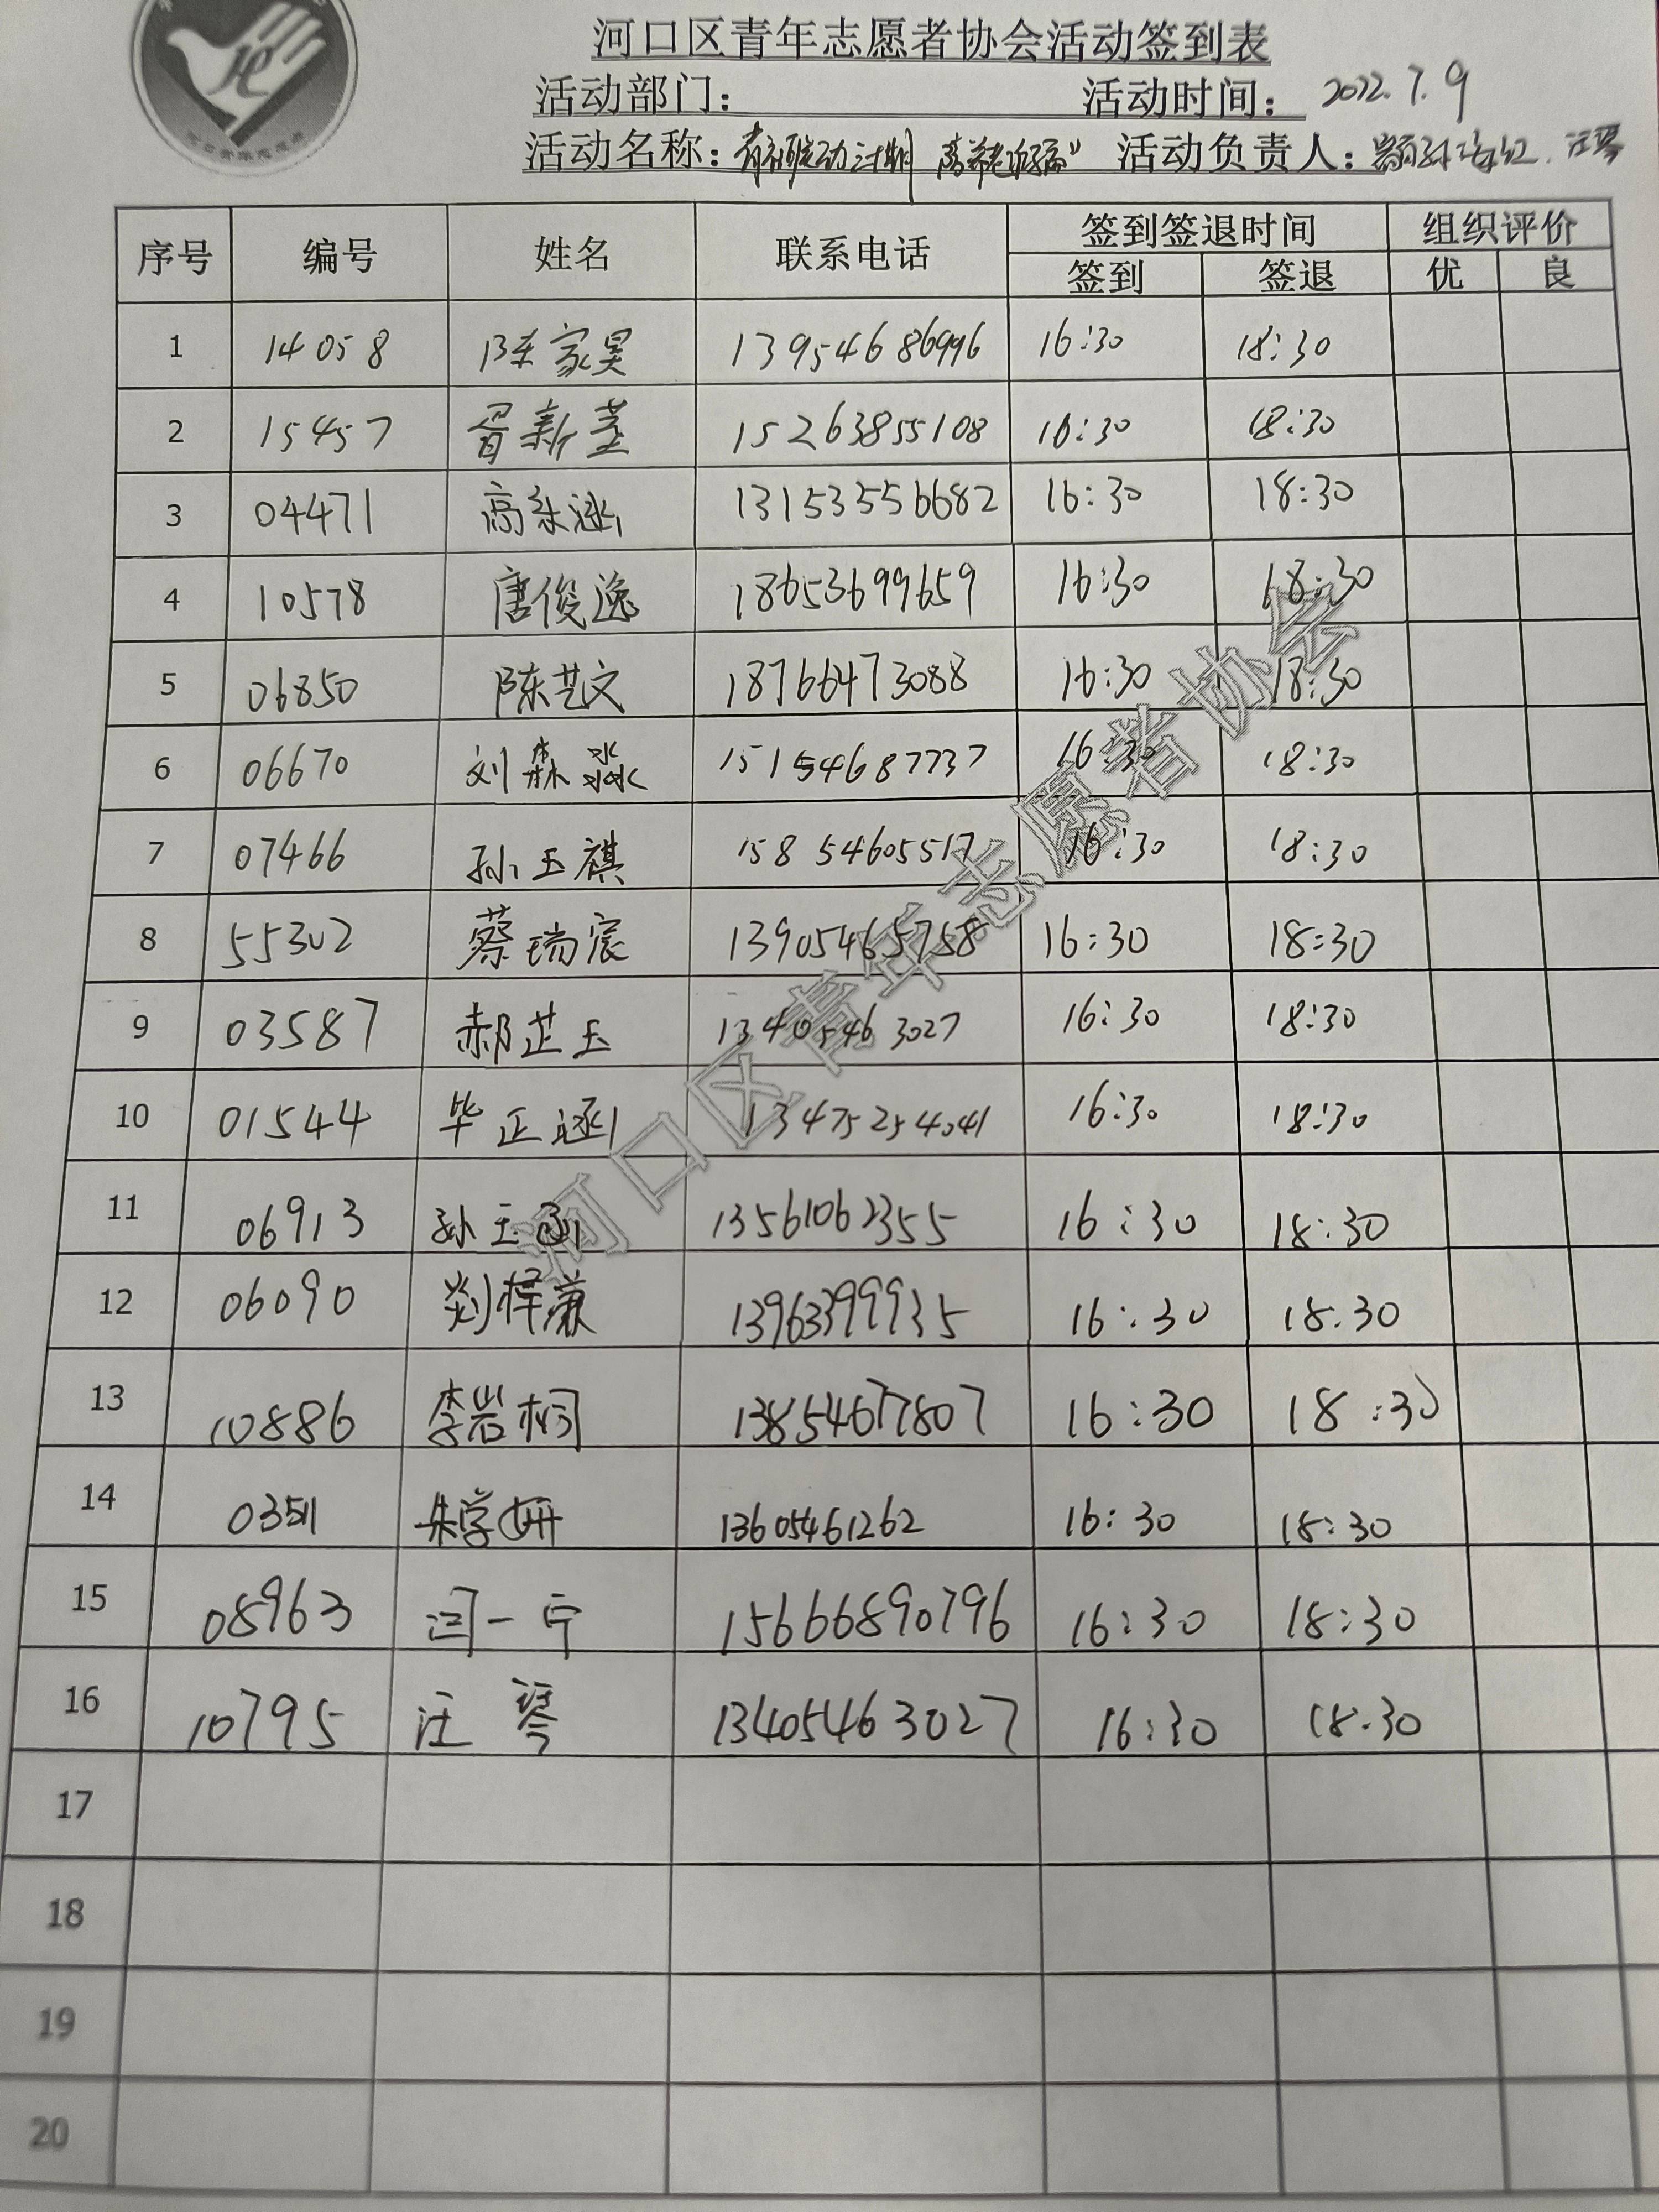 河口区青年志愿者协会活动签到表
活动部门： 活动时间：2022.7.9
活动名称： 活动负责人： 汪琴
序号 编号 姓名 联系电话 签到签退时间 组织评价
签到 签退 优 良
1 14058 陈家昊 13954686996 16:30 18:30
2 15457 胥新荃 15263855108 16:30 18:30
3 04471 高永涵 13153556682 16:30 18:30
4 10578 唐俊逸 18653699659 16:30 18:30
5 06850 陈艺文 18766473088 16:30 18:30
6 06670 刘森淼 15154687737 16:30 18:30
7 07466 孙玉祺 15854605517 16:30 18:30
8 55302 蔡瑞宸 13905465758 16:30 18:30
9 03587 郝芷玉 13405463027 16:30 18:30
10 01544 毕正涵 13475254041 16:30 18:30
11 06913 孙玉 13561062355 16:30 18:30
12 06090 刘梓蒹 13963399935 16:30 18.30
13 10886 李岩桐 13854677807 16:30 18:30
14 03511 朱学妍 13605461262 16:30 18:30
15 08963 闫一宁 15666890796 16:30 18:30
16 10795 汪琴 13405463027 16:30 18.30
17
18
19
20
河口区青年志愿者协会